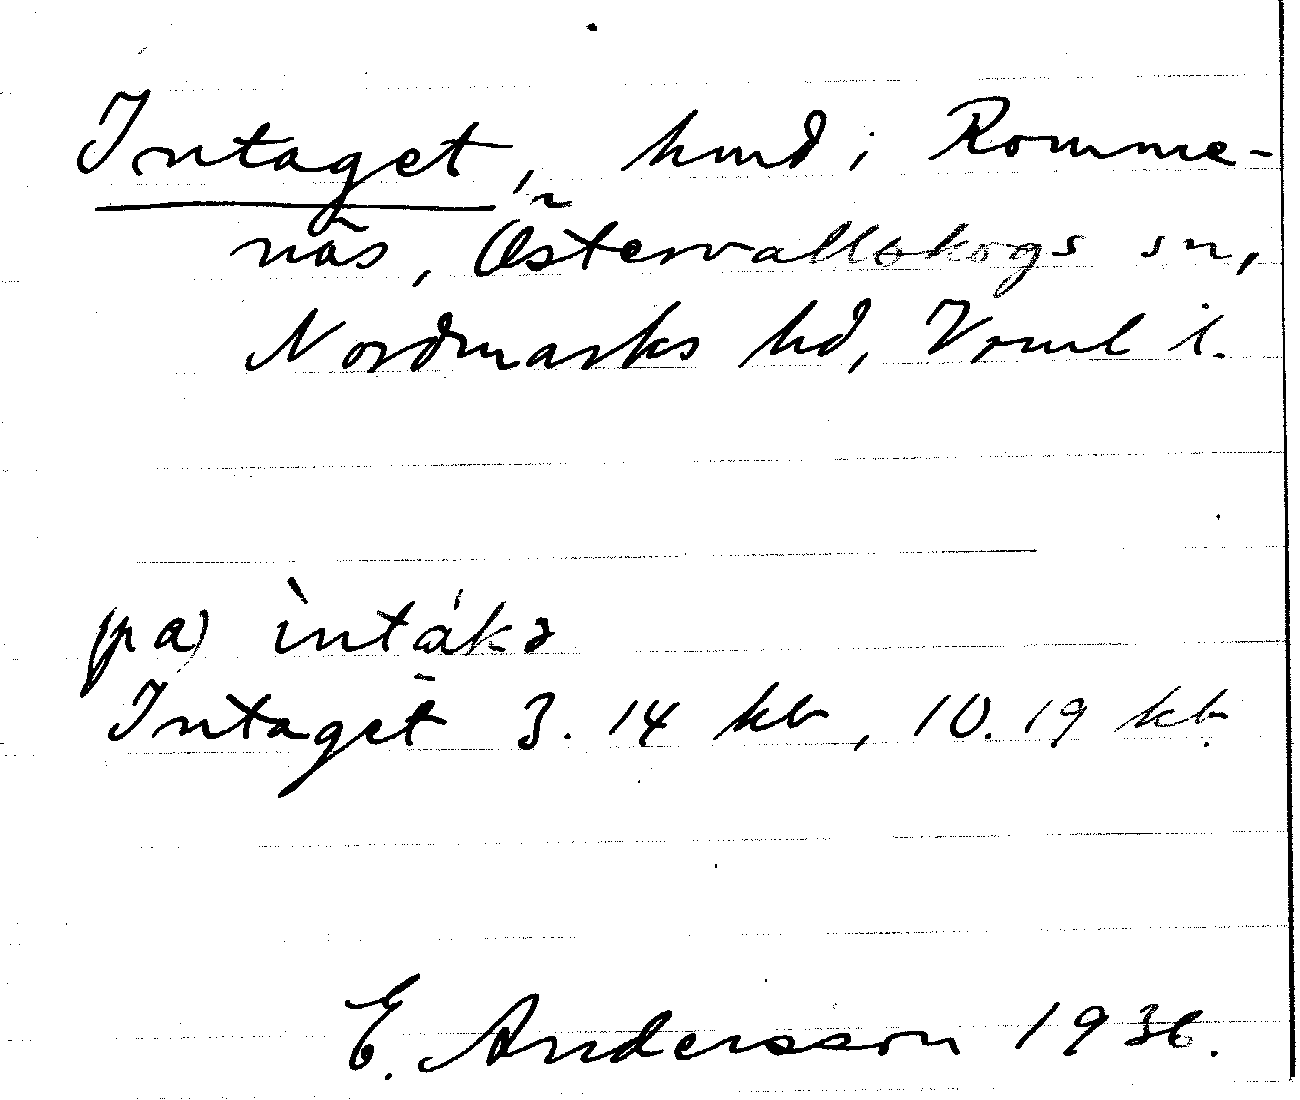 Intaget, hmd i Romme-
näs, Östervallskogs sn,
Nordmarks hd, Vrml l.
(på) ìntákə
Intaget 3.14 kb, 10.19 kb.
E. Andersson 1936.